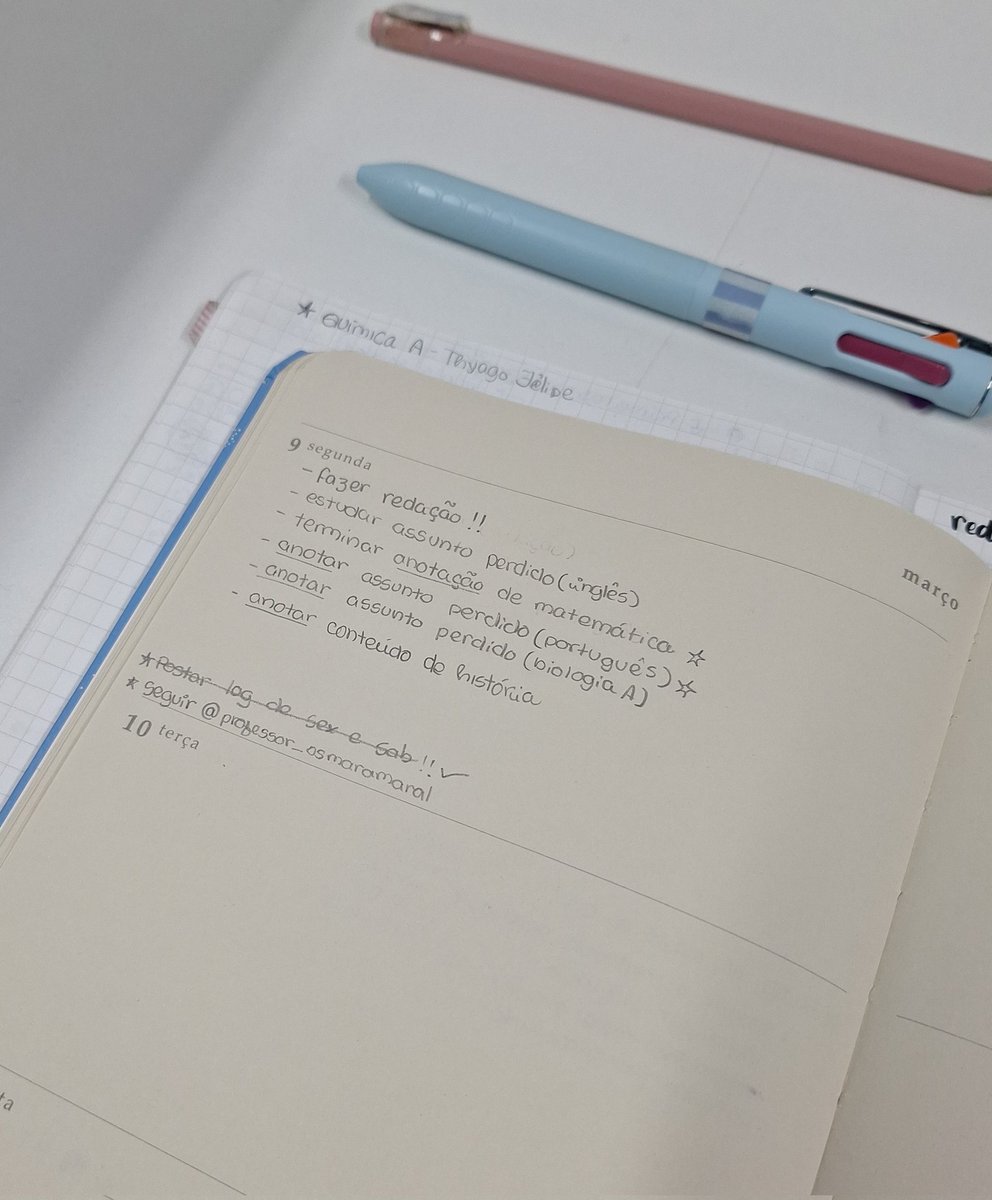 ★ Química A - Thyago Felipe
red
março
9 segunda
- fazer redação!!
- estudar assunto perdido (inglês)
- terminar anotação de matemática ☆
- anotar assunto perdido (português) ☆
- anotar assunto perdido (biologia A)
- anotar conteúdo de história
★ Postar log de sex e sab!! ✓
★ seguir @professor_osmaramaral
10 terça
ta